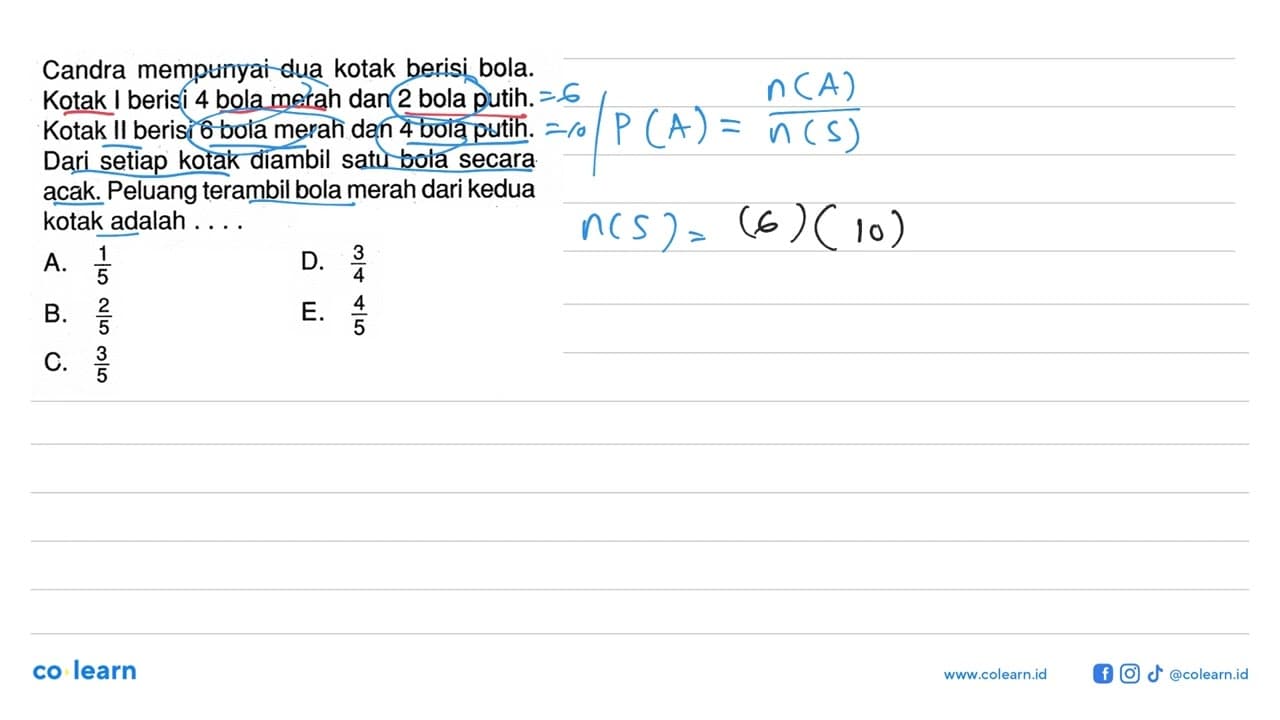 Candra mempunyai dua kotak berisi bola.
Kotak I berisi 4 bola merah dan 2 bola putih. = 6
Kotak II berisi 6 bola merah dan 4 bola putih. = 10
Dari setiap kotak diambil satu bola secara
acak. Peluang terambil bola merah dari kedua
kotak adalah . . . .
A. 1/5
B. 2/5
C. 3/5
D. 3/4
E. 4/5
P(A) = n(A)/n(S)
n(S) = (6)(10)
co learn
www.colearn.id
@colearn.id